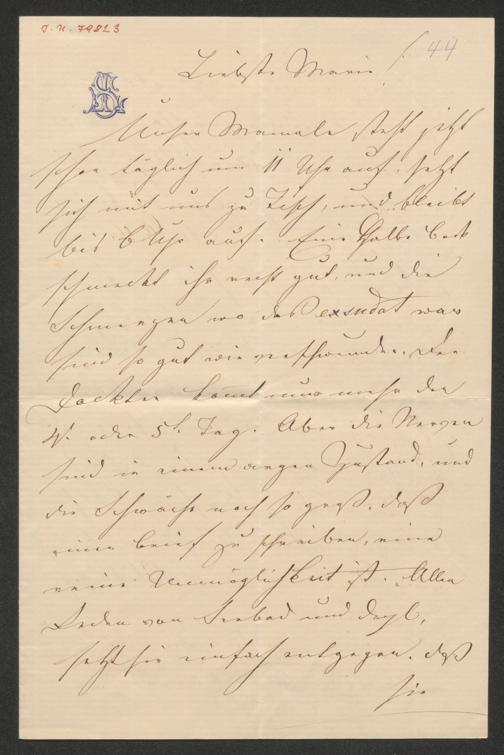 J. N. 79813
44
Liebste Marie!
Unser Mamale steht jetzt
schon täglich um 11 Uhr auf, setzt
sich mit uns zu Tisch, und bleibt
bis 6 Uhr auf. Eine halbe
schmeckt ihr recht gut, und die
Schmerzen wo das Exsudat war
sind so gut wie verschwunden. Der
Docktor kommt nur mehr den
4t. oder 5t. Tag. Aber die Nerven
sind in einem argen Zustand, und
die Schwäche noch so groß, daß
einen Brief zu schreiben, eine
reine Unmöglichkeit ist. Allen
Reden von Seebad und dergl,
setzt sie einfach entgegen, daß
sie